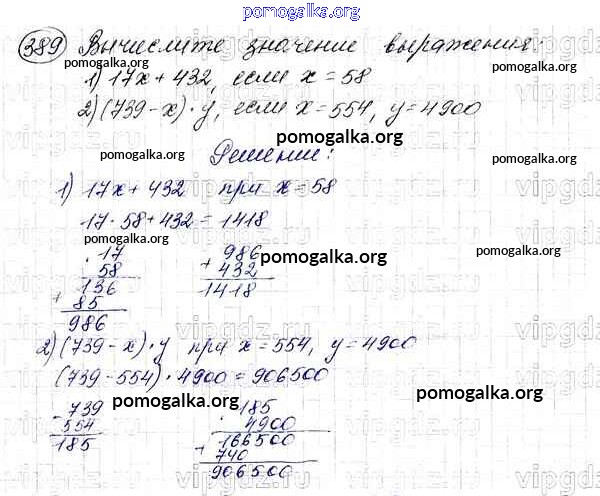 pomogalka.org
389 Вычислите значение выражения:
1) 17x + 432, если x = 58
2) (739 - x) · y, если x = 554, y = 4900
Решение:
1) 17x + 432 при x = 58
17 · 58 + 432 = 1418
· 17
58
136
+ 85
986
986
+ 432
1418
2) (739 - x) · y при x = 554, y = 4900
(739 - 554) · 4900 = 906500
- 739
554
185
· 185
4900
166500
+ 740
906500
pomogalka.org
pomogalka.org
pomogalka.org
pomogalka.org
pomogalka.org
pomogalka.org
pomogalka.org
pomogalka.org
pomogalka.org
pomogalka.org
vipgdz.ru